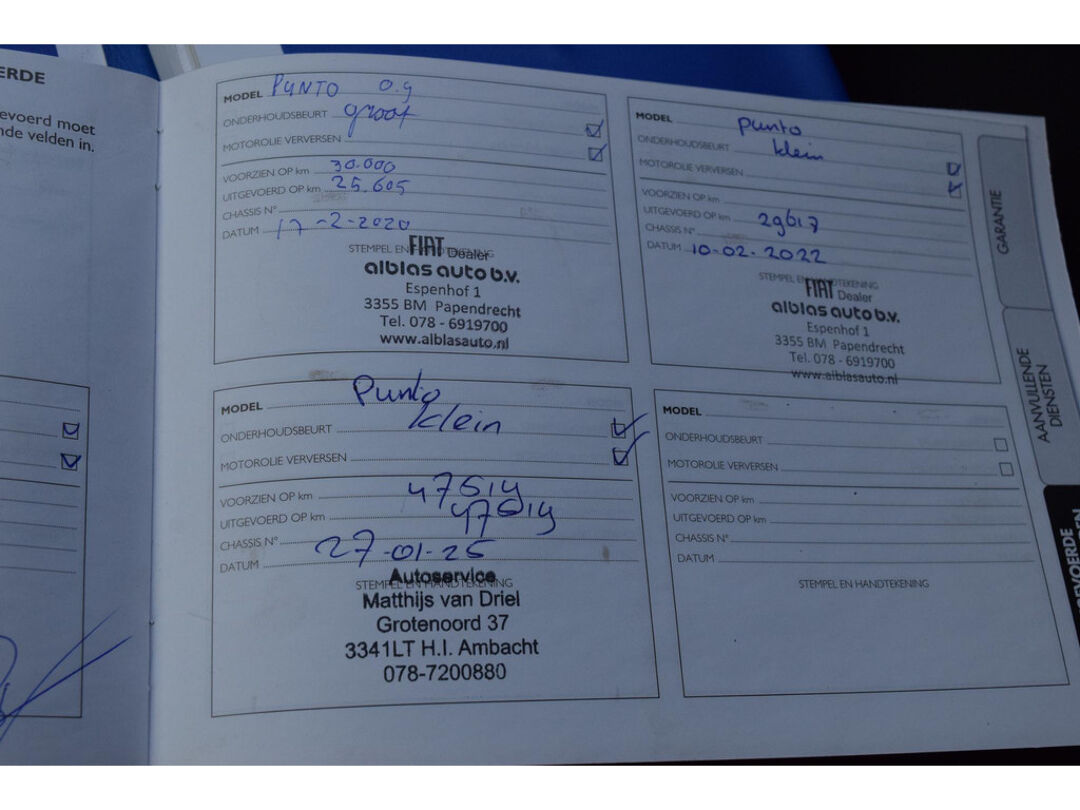 ERDE
evoerd moet
nde velden in.
MODEL PUNTO 0.9
ONDERHOUDSBEURT groot
MOTOROLIE VERVERSEN
VOORZIEN OP km 30.000
UITGEVOERD OP km 25.605
CHASSIS N°
DATUM 17-2-2020
STEMPEL EN HANDTEKENING
FIAT Dealer
alblas auto b.v.
Espenhof 1
3355 BM Papendrecht
Tel. 078 - 6919700
www.alblasauto.nl
MODEL Punto
ONDERHOUDSBEURT klein
MOTOROLIE VERVERSEN
VOORZIEN OP km
UITGEVOERD OP km 29617
CHASSIS N°
DATUM 10-02-2022
STEMPEL EN HANDTEKENING
FIAT Dealer
alblas auto b.v.
Espenhof 1
3355 BM Papendrecht
Tel. 078 - 6919700
www.alblasauto.nl
MODEL Punto
ONDERHOUDSBEURT klein
MOTOROLIE VERVERSEN
VOORZIEN OP km 47614
UITGEVOERD OP km 47614
CHASSIS N°
DATUM 27-01-25
STEMPEL EN HANDTEKENING
Autoservice
Matthijs van Driel
Grotenoord 37
3341LT H.I. Ambacht
078-7200880
MODEL
ONDERHOUDSBEURT
MOTOROLIE VERVERSEN
VOORZIEN OP km
UITGEVOERD OP km
CHASSIS N°
DATUM
STEMPEL EN HANDTEKENING
GARANTIE
AANVULLENDE
DIENSTEN
EVOERDE